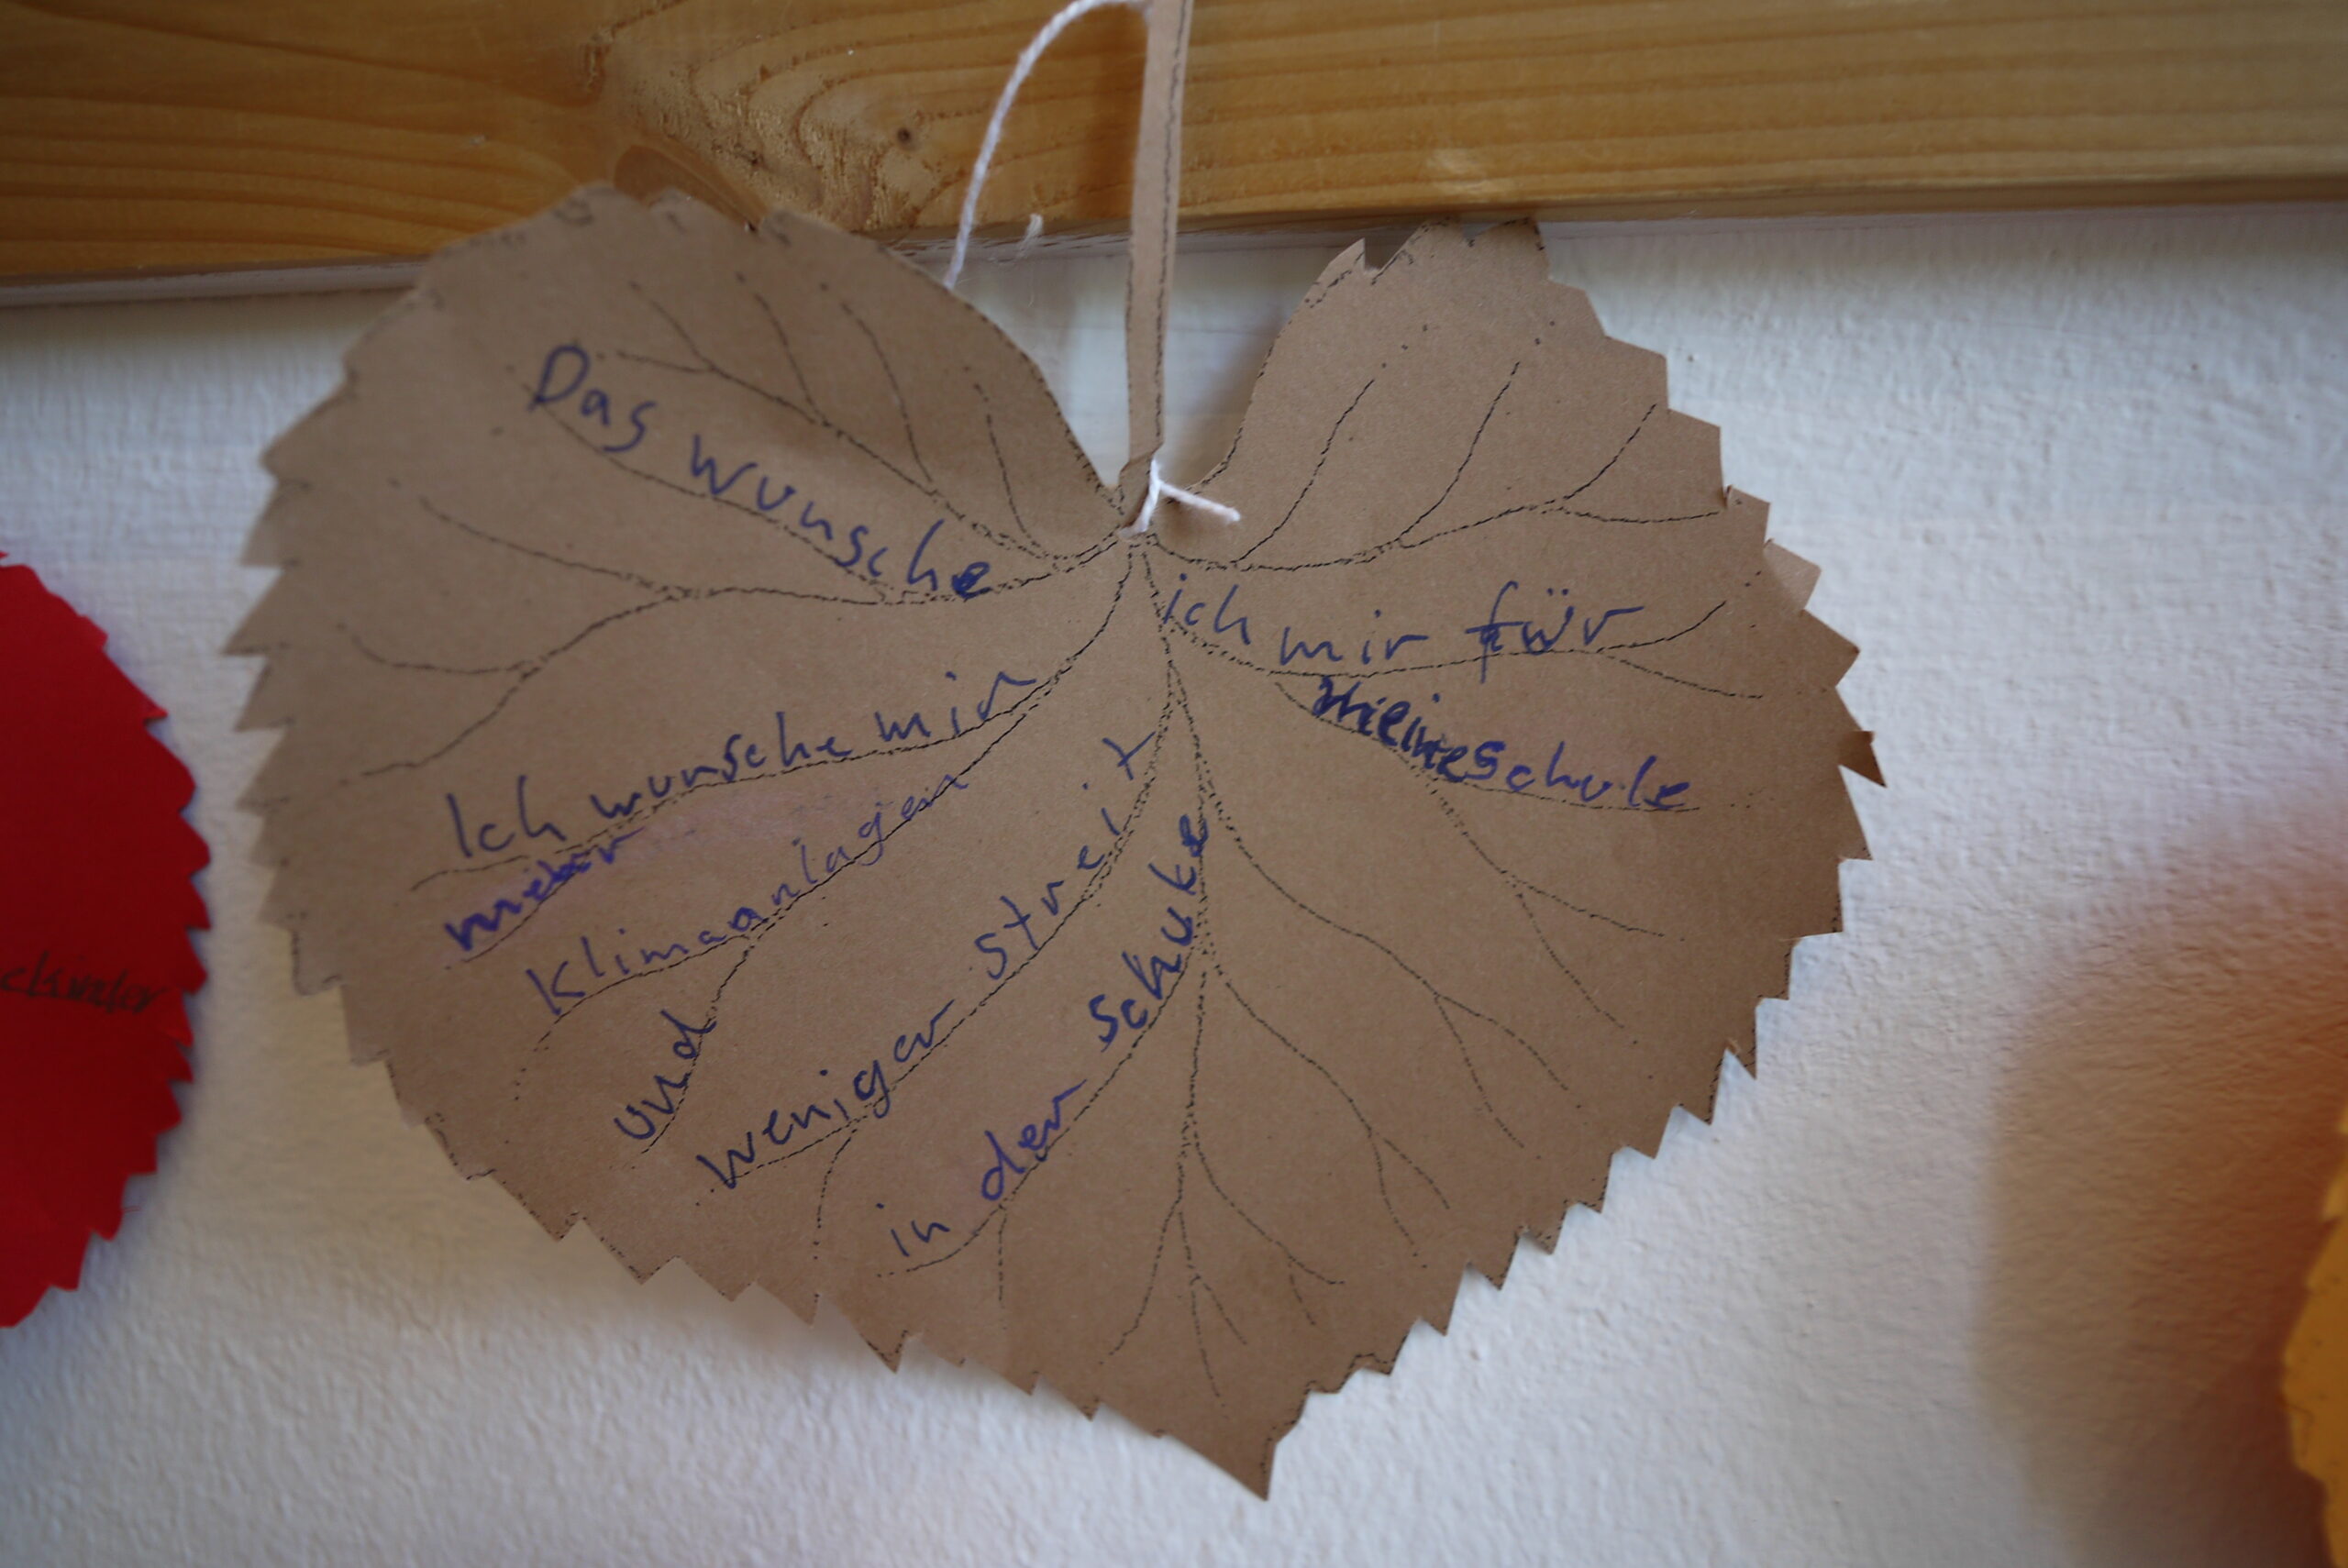 Das wunsche
ich mir für
meine schule
Ich wunsche mir
mehr
Klimaanlagen
und
weniger streit
in der schule